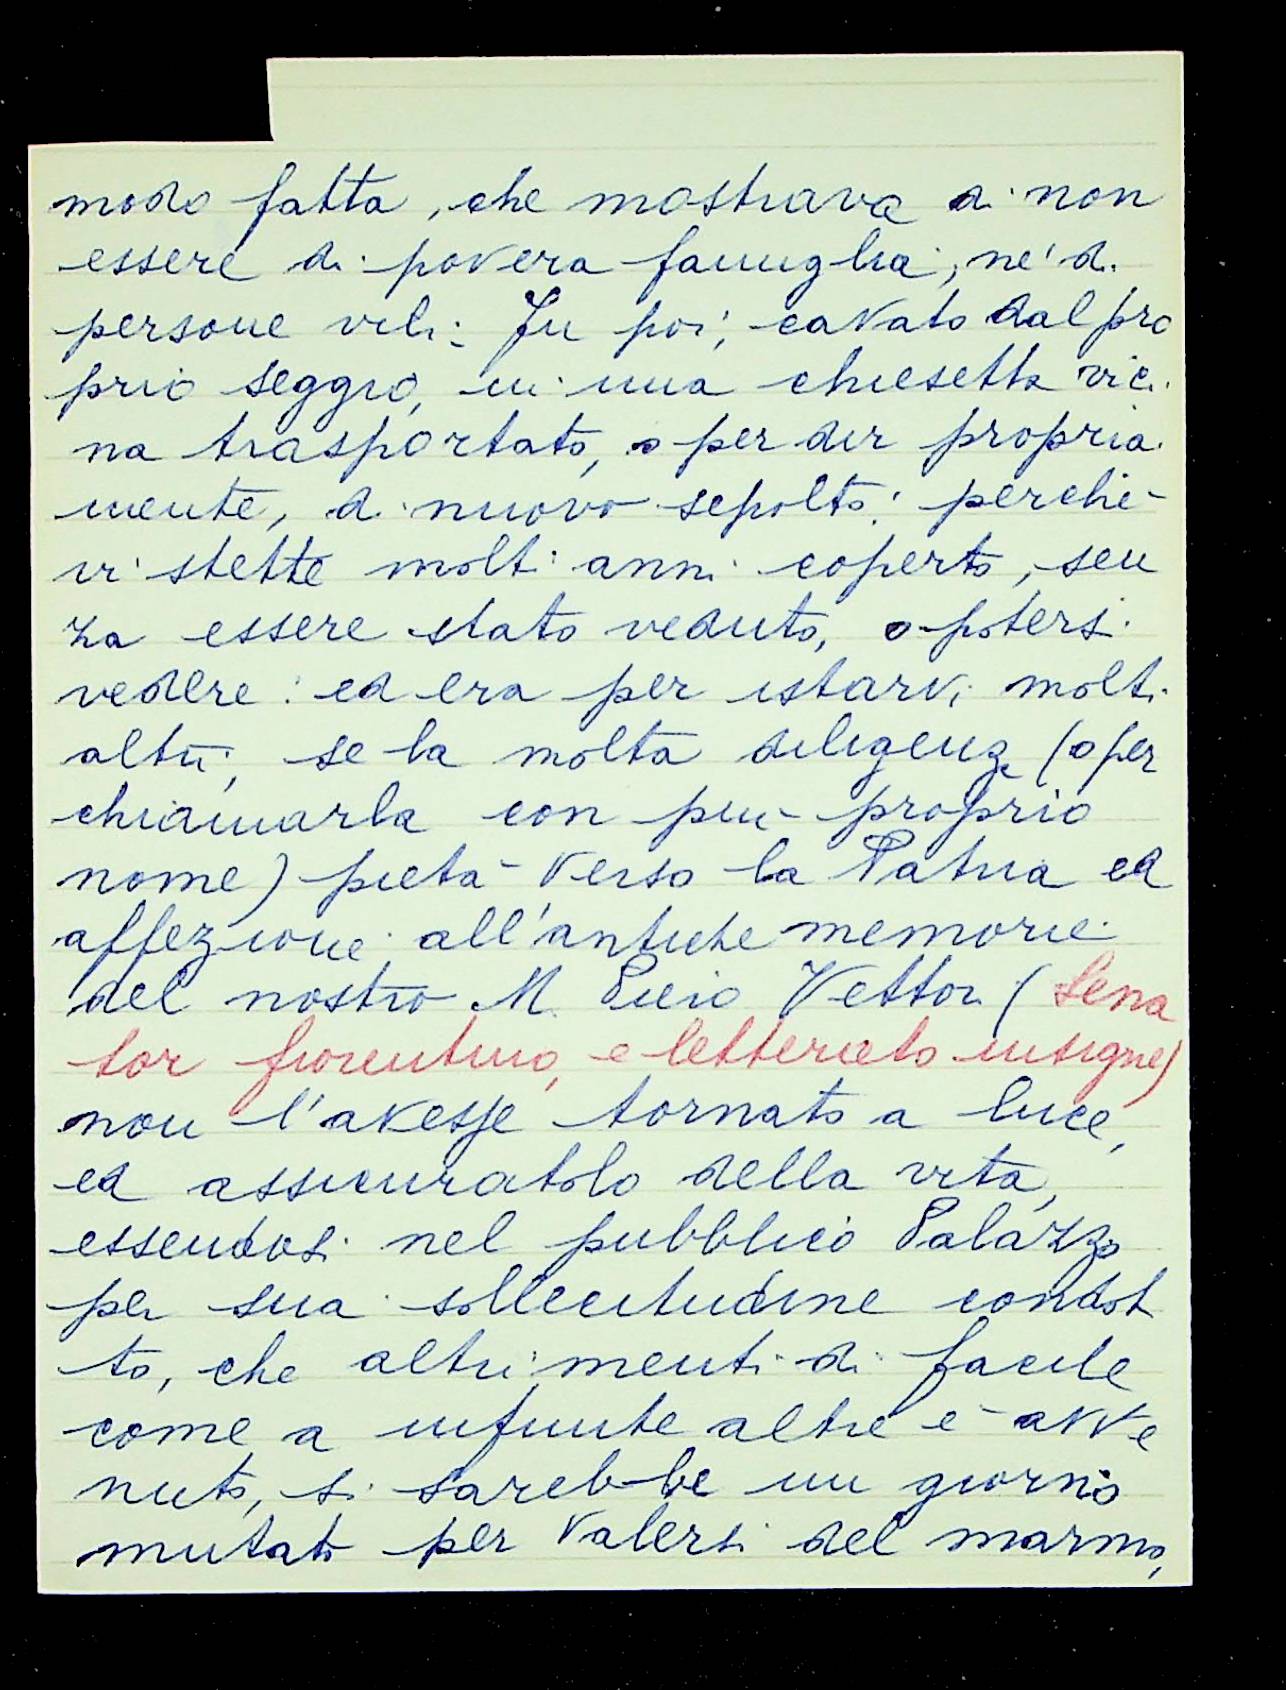 modo fatta, che mostrava di non
essere di povera famiglia, né di
persone vili: Fu poi, cavato dal pro
prio seggio, in una chiesetta vici
na trasportato, o per dir propria
mente, di nuovo sepolto: perchè
vi stette molti anni coperto, sen
za essere stato veduto, o potersi
vedere: ed era per istarvi molti
altri, se la molta diligenza (o per
chiamarla con più proprio
nome) pietà verso la Patria ed
affezione all'antiche memorie
del nostro M. Piero Vettori (Sena
tor fiorentino, e letterato insigne)
non l'avesse tornato a luce,
ed assicuratolo della vita,
essendosi nel pubblico Palazzo
per sua sollecitudine condot
to, che altrimenti di facile
come a infinite altre è avve
nuto, si sarebbe un giorno
mutato per valersi del marmo,